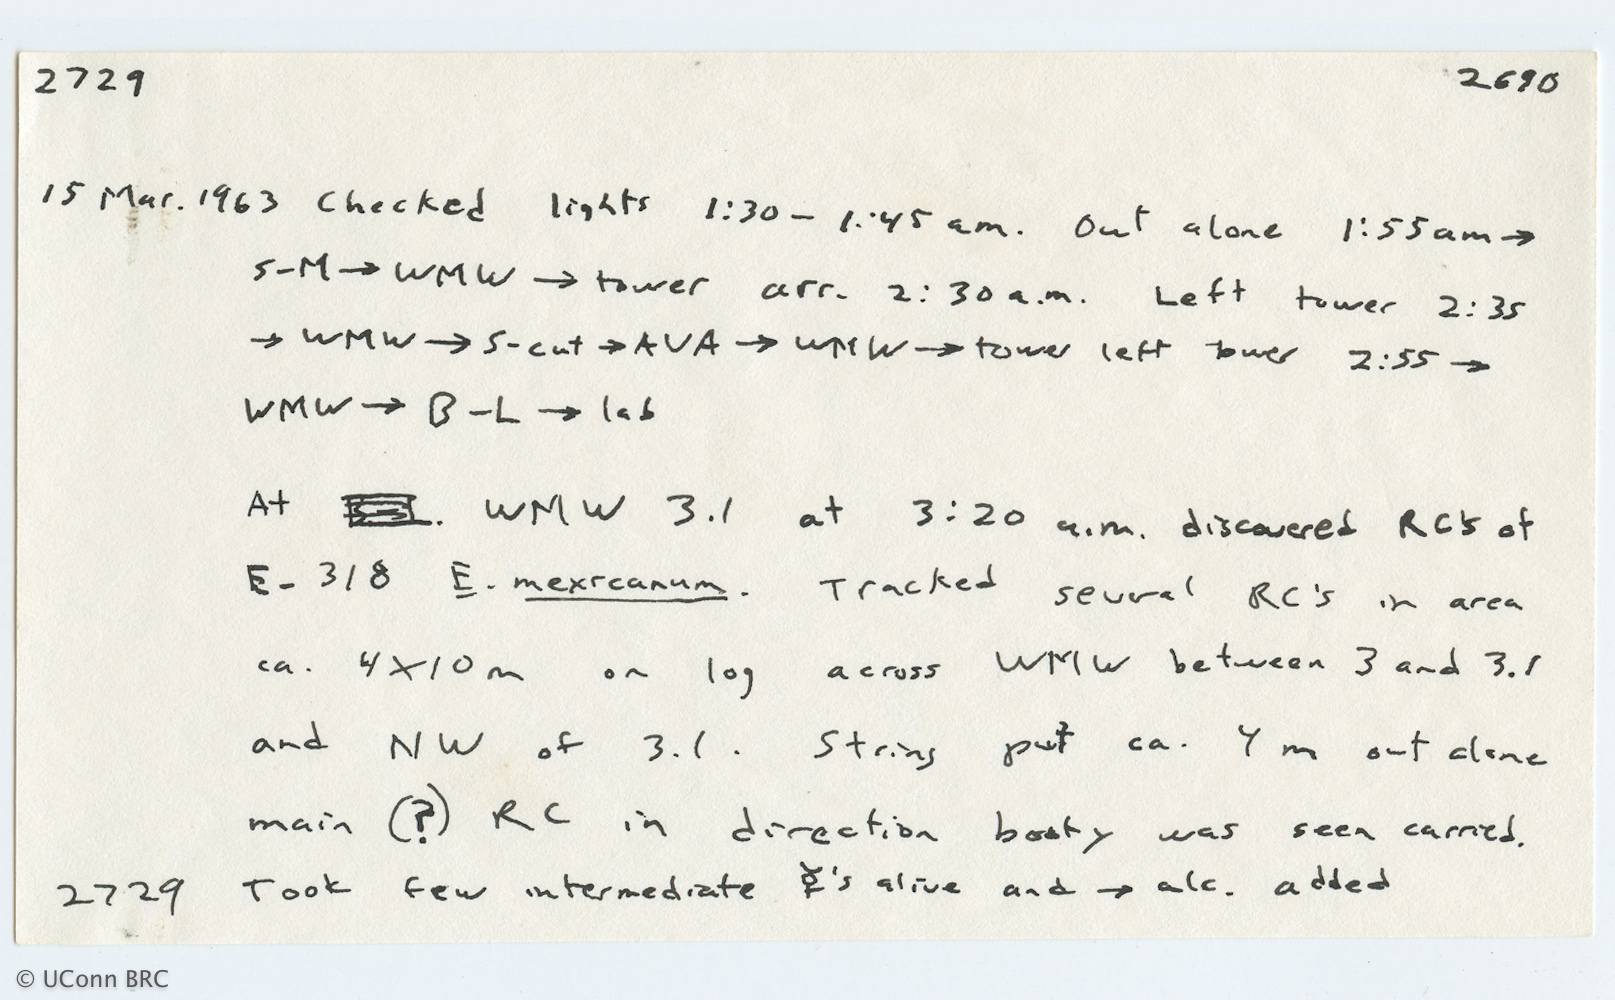 2729 2690
15 Mar. 1963 Checked lights 1:30 - 1:45 am. Out alone 1:55am →
S-M → WMW → tower arr. 2:30 a.m. Left tower 2:35
→ WMW → S-cut → AVA → WMW → tower left tower 2:55 →
WMW → B-L → lab
At WMW 3.1 at 3:20 a.m. discovered RC's of
E-318 E. mexicanum. Tracked several RC's in area
ca. 4X10 m on log across WMW between 3 and 3.1
and NW of 3.1. String put ca. 4 m out alone
main (?) RC in direction booty was seen carried.
2729 Took few intermediate ☿'s alive and → alc. added
© UConn BRC